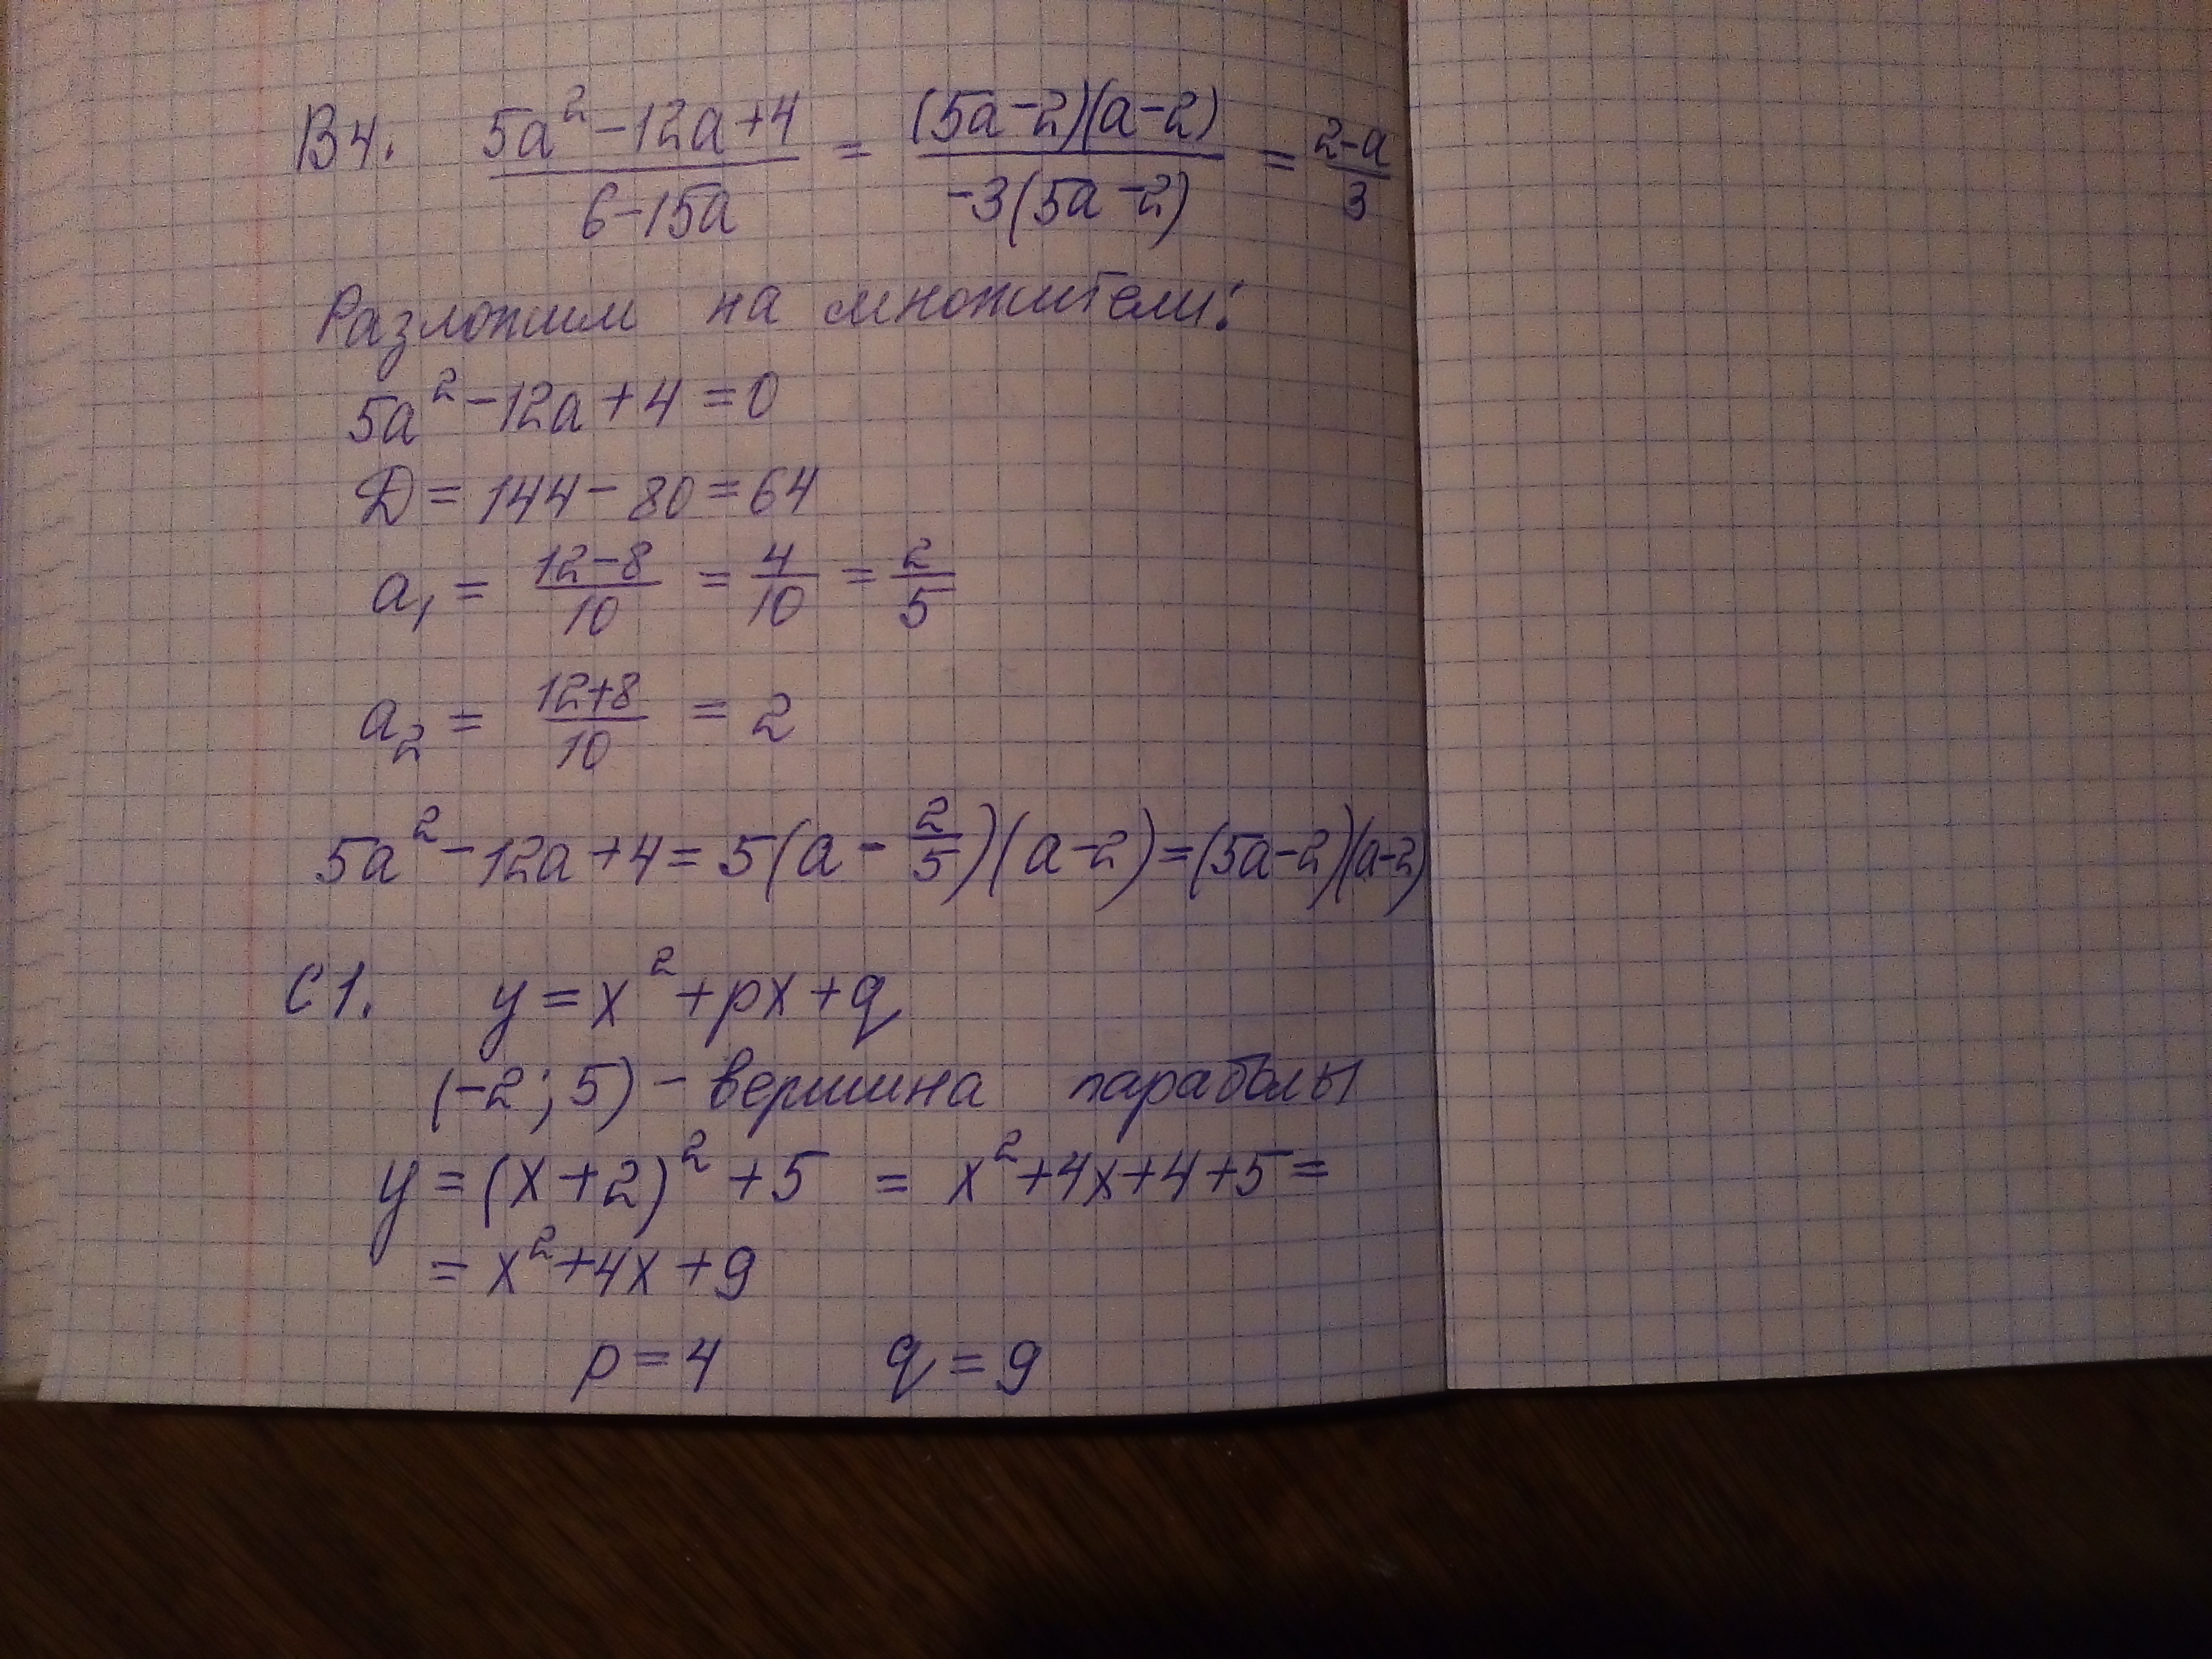 В4. (5a² - 12a + 4)/(6 - 15a) = ((5a - 2)(a - 2))/(-3(5a - 2)) = (2 - a)/3
Разложим на множители:
5a² - 12a + 4 = 0
D = 144 - 80 = 64
a₁ = (12 - 8)/10 = 4/10 = 2/5
a₂ = (12 + 8)/10 = 2
5a² - 12a + 4 = 5(a - 2/5)(a - 2) = (5a - 2)(a - 2)
С1. y = x² + px + q
(-2; 5) - вершина параболы
y = (x + 2)² + 5 = x² + 4x + 4 + 5 =
= x² + 4x + 9
p = 4 q = 9